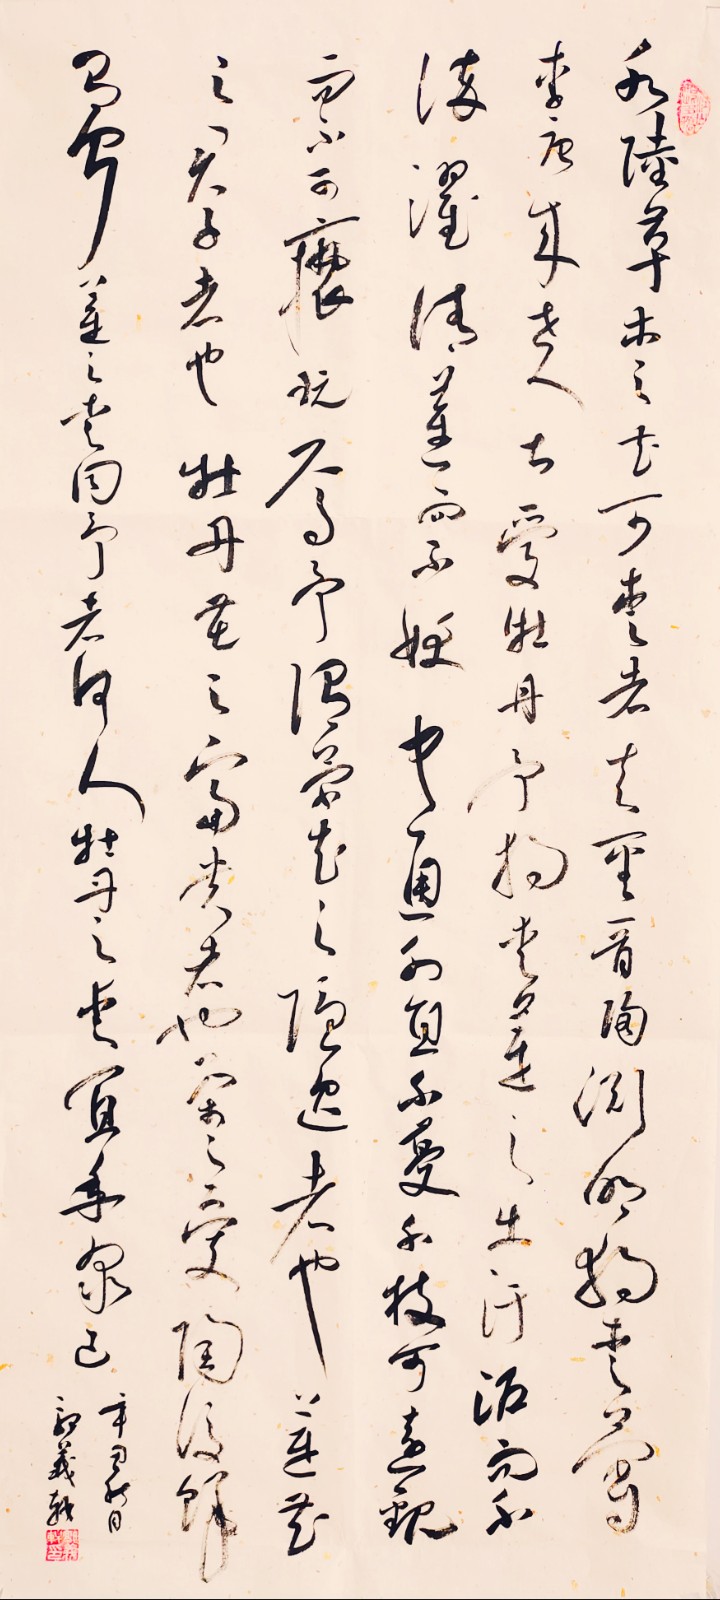 水陸草木之花可愛者甚蕃晉陶淵明獨愛菊
李唐來世人甚愛牡丹予獨愛蓮之出淤泥而不
染濯清漣而不妖中通外直不蔓不枝可遠觀
而不可褻玩焉予謂菊花之隱逸者也蓮花
之君子者也牡丹花之富貴者也菊之愛陶後鮮
有聞蓮之愛同予者何人牡丹之愛宜乎衆已
辛丑秋月
義